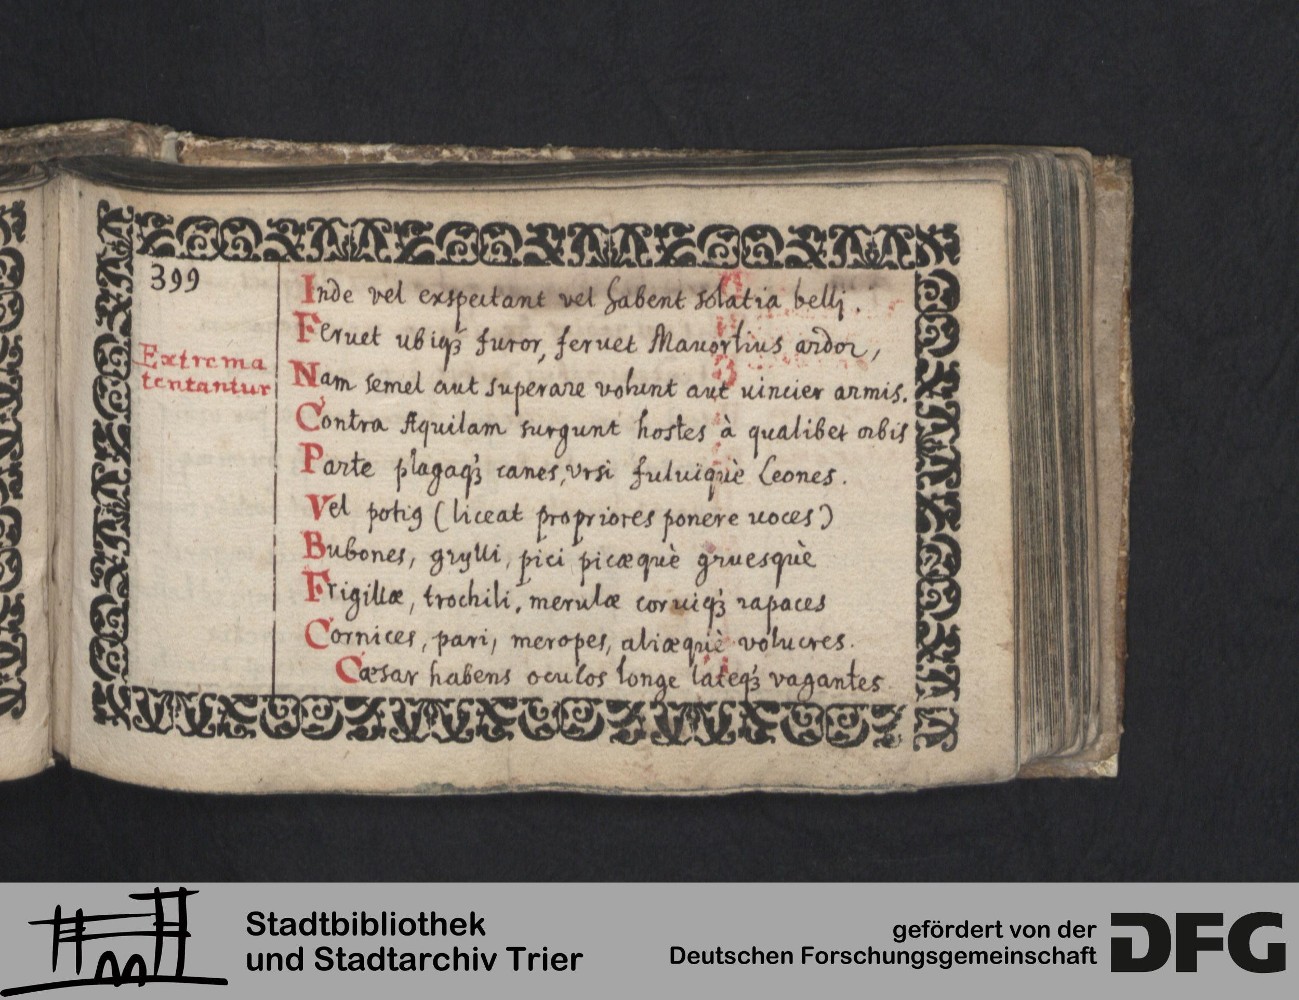 399
Extrema
tentantur
Inde vel exspectant vel habent solatia belli.
Feruet ubiqꝫ furor, feruet Mauortius ardor,
Nam semel aut superare volunt aut uincier armis.
Contra Aquilam surgunt hostes à qualibet orbis
Parte plagaqꝫ canes, vrsi fuluiquè Leones.
Vel potiꝰ (liceat propriores ponere uoces)
Bubones, grylli, pici picæquè gruesquè
Frigillæ, trochili, merulæ coruiqꝫ rapaces
Cornices, pari, meropes, aliæquè volucres.
Cæsar habens oculos longe lateqꝫ vagantes
Stadtbibliothek
und Stadtarchiv Trier
gefördert von der
Deutschen Forschungsgemeinschaft
DFG